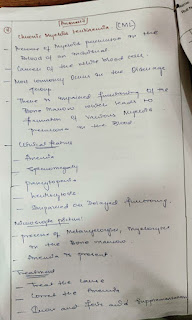 Chronic Myeloid Leukaemia (CML)
Presence of Myeloid precursor in the
blood of an individual
Cancer of the white blood cells.
Most commonly occurs in the
group
There is impaired functioning of the
Bone Marrow which leads to
formation of various Myeloid
precursors in the blood
Clinical features
Anemia
Splenomegaly
Leukocytosis
Impaired or Decreased functioning.
Microscopic features
presence of Metamyelocytes, Myelocytes
in the bone marrow.
Anemia is present.
Treatment
Treat the cause
Correct the Anemia
Iron and Folic acid